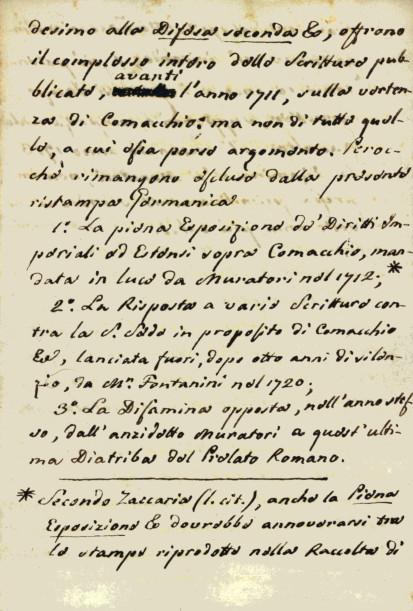 desimo alla Difesa seconda &c, offrono
il complesso intero delle Scritture pub-
blicate, avanti l'anno 1711, sulla verten-
za di Comacchio: ma non di tutte quel-
le, a cui essa porse argomento. Peroc-
chè rimangono escluse dalla presente
ristampa Germanica
1.º La piena Esposizione de' Diritti Im-
periali ed Estensi sopra Comacchio, man-
data in luce da Muratori nel 1712; *
2.º La Risposta a varie Scritture con-
tra la S. Sede in proposito di Comacchio
&c, lanciata fuori, dopo otto anni di silen-
zio, da M.r Fontanini nel 1720;
3.º La Disamina opposta, nell'anno stes-
so, dall'anzidetto Muratori a quest'ulti-
ma Diatriba del Prelato Romano.
* Secondo Zaccaria (l. cit.), anche la Piena
Esposizione &c dovrebbe annoverarsi tra
le stampe riprodotte nella Raccolta di